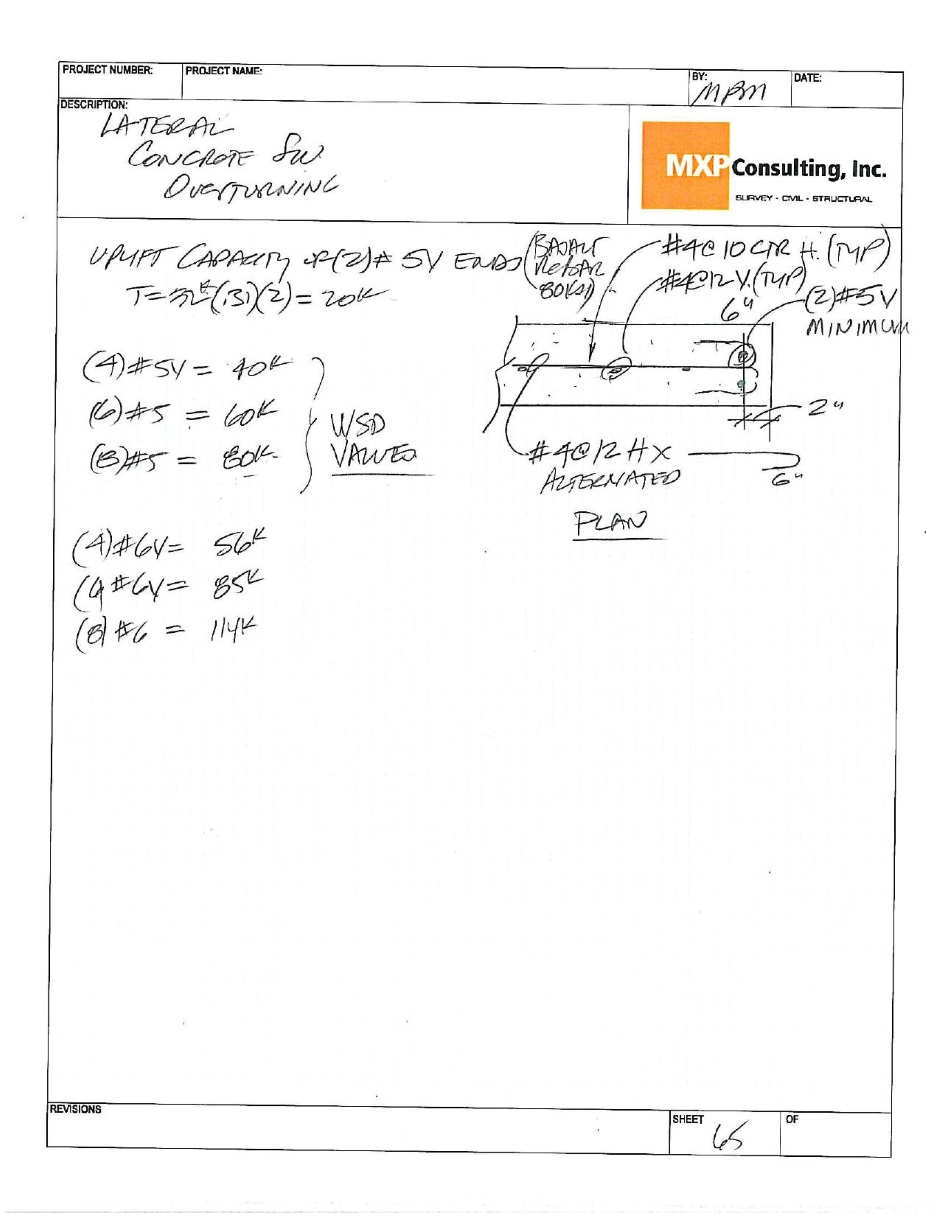 PROJECT NUMBER:
PROJECT NAME:
BY:
MBM
DATE:
DESCRIPTION:
LATERAL
CONCRETE SW.
OVERTURNING
MXP Consulting, Inc.
SURVEY - CIVIL - STRUCTURAL
UPLIFT CAPACITY OF (2)# 5V ENDS (BASALT
REBAR
80KSI)
T=32ᵏ(.31)(2) = 20K
#4@10 CTR H. (TYP)
#4@12 V. (TYP)
6"
(2)#5V
MINIMUM
(4)#5V = 40K
(6)#5 = 60K
(8)#5 = 80K
WSD
VALUES
2"
#4@12 H X
ALTERNATED
6"
PLAN
(4)#6V= 56K
(6)#6V= 85K
(8)#6 = 114K
REVISIONS
SHEET
65
OF